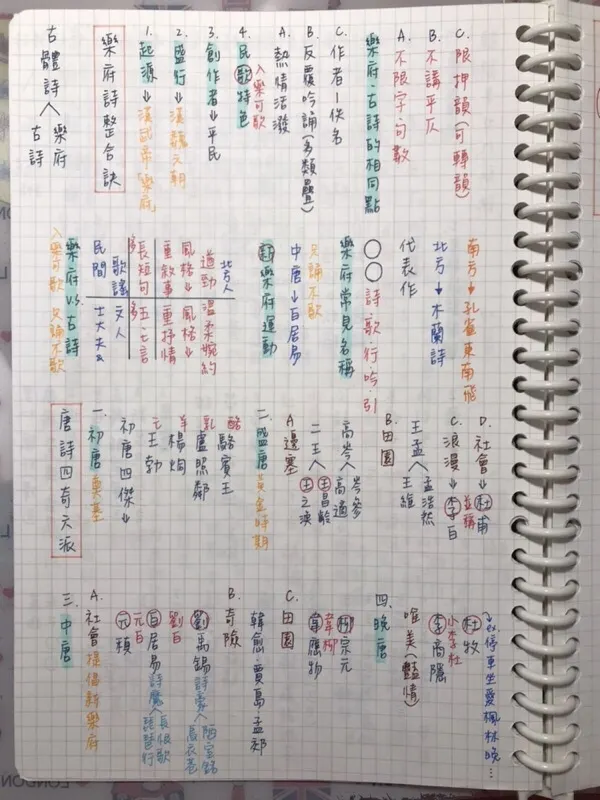 古體詩
樂府
古詩
樂府詩整合訣
1. 起源→漢武帝 樂府
2. 盛行→漢魏六朝
3. 創作者→平民
4. 民歌特色
入樂可歌
A. 熱情活潑
B. 反覆吟誦(多類疊)
C. 作者—佚名
樂府、古詩的相同點
A. 不限字句數
B. 不講平仄
C. 限押韻(可轉韻)
入樂可歌 只誦不歌
樂府 v.s. 古詩
民間 士大夫
歌謠 文人
多長短句 多五、七言
重敘事 重抒情
風格→ 風格→
遒勁 溫柔婉約
北方人
新樂府運動
中唐→白居易
只誦不歌
樂府常見名稱
○○詩、歌、行、吟、引
代表作
北方→木蘭詩
南方→孔雀東南飛
唐詩四奇六派
一、初唐 奠基
初唐四傑→
王勃
楊炯
羊
盧照鄰
乳
駱賓王
酪
二、盛唐 黃金時期
A 邊塞
二王
王之渙
王昌齡
高岑
高適
岑參
B. 田園
王孟
王維
孟浩然
C. 浪漫→李白
並稱
D. 社會→杜甫
三、中唐
A. 社會 提倡新樂府
元稹
元白
白居易 詩魔
長恨歌
琵琶行
劉白
劉禹錫 詩豪
陋室銘
烏衣巷
B. 奇險
韓愈、賈島、孟郊
C. 田園
韋應物
韋柳
柳宗元
四、晚唐
唯美(豔情)
李商隱
小李杜
杜牧
停車坐愛楓林晚…